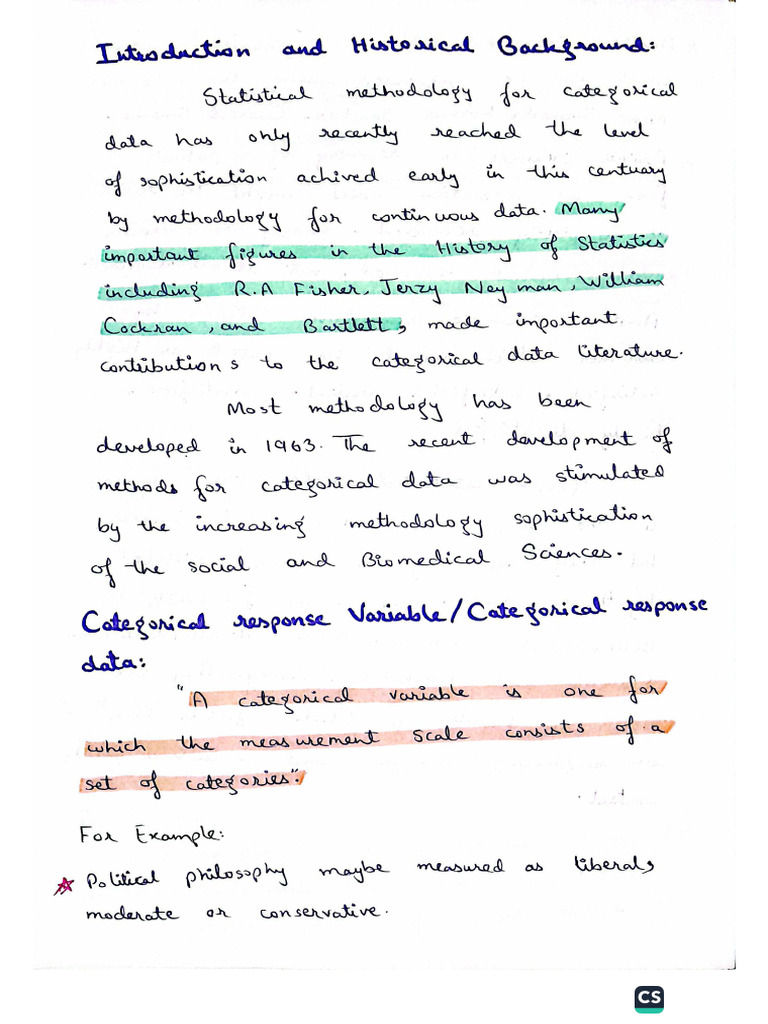 Introduction and Historical Background:
Statistical methodology for categorical
data has only recently reached the level
of sophistication achived early in this centuary
by methodology for continuous data. Many
important figures in the History of Statistics
including R.A Fisher, Jerzy Neyman, William
Cockran, and Bartlett, made important
contributions to the categorical data literature.
Most methodology has been
developed in 1963. The recent development of
methods for categorical data was stimulated
by the increasing methodology sophistication
of the social and Biomedical Sciences.
Categorical response Variable/Categorical response
data:
"A categorical variable is one for
which the measurement Scale consists of a
set of categories".
For Example:
☆ Political philosophy maybe measured as liberal,
moderate or conservative.
CS